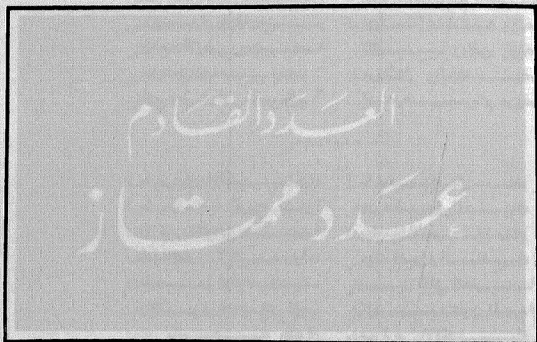 العَدَد القَادم
عَدَد ممتاز